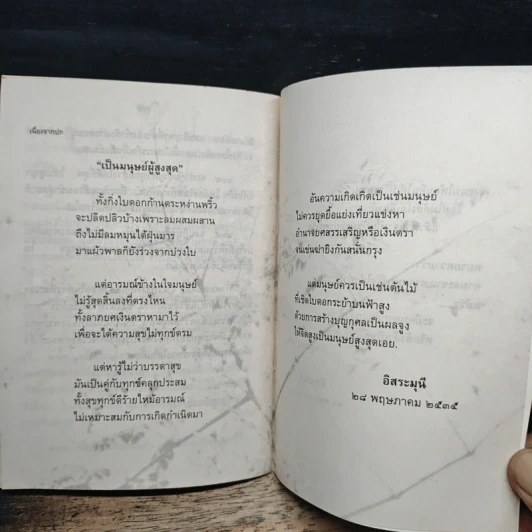 เนื่องจากปก
"เป็นมนุษย์ผู้สูงสุด"
ทั้งกิ่งใบดอกก้านตระหง่านพริ้ว
จะปลิดปลิวบ้างเพราะลมผสมผสาน
ถึงไม่มีลมหมุนไต้ฝุ่นมาร
มาแผ้วพาลก็ยังร่วงจากบ่วงใบ
แต่อารมณ์ข้างในใจมนุษย์
ไม่รู้สุดสิ้นลงที่ตรงไหน
ทั้งลาภยศเงินตราหามาไว้
เพื่อจะได้ความสุขไม่ทุกข์ตรม
แต่หารู้ไม่ว่าบรรดาสุข
มันเป็นคู่กับทุกข์คลุกประสม
ทั้งสุขทุกข์ดีร้ายไหม้อารมณ์
ไม่เหมาะสมกับการเกิดกำเนิดมา
อันความเกิดเกิดเป็นเช่นมนุษย์
ไม่ควรยุดยื้อแย่งเที่ยวแข่งหา
อำนาจยศสรรเสริญหรือเงินตรา
จนเช่นฆ่ายิงกันสนั่นกรุง
แต่มนุษย์ควรเป็นเช่นต้นไม้
ที่เชิดใบดอกระย้าบนฟ้าสูง
ด้วยการสร้างบุญกุศลเป็นผลจูง
ให้จิตสูงเป็นมนุษย์สูงสุดเอย.
อิสระมุนี
๒๘ พฤษภาคม ๒๕๓๕